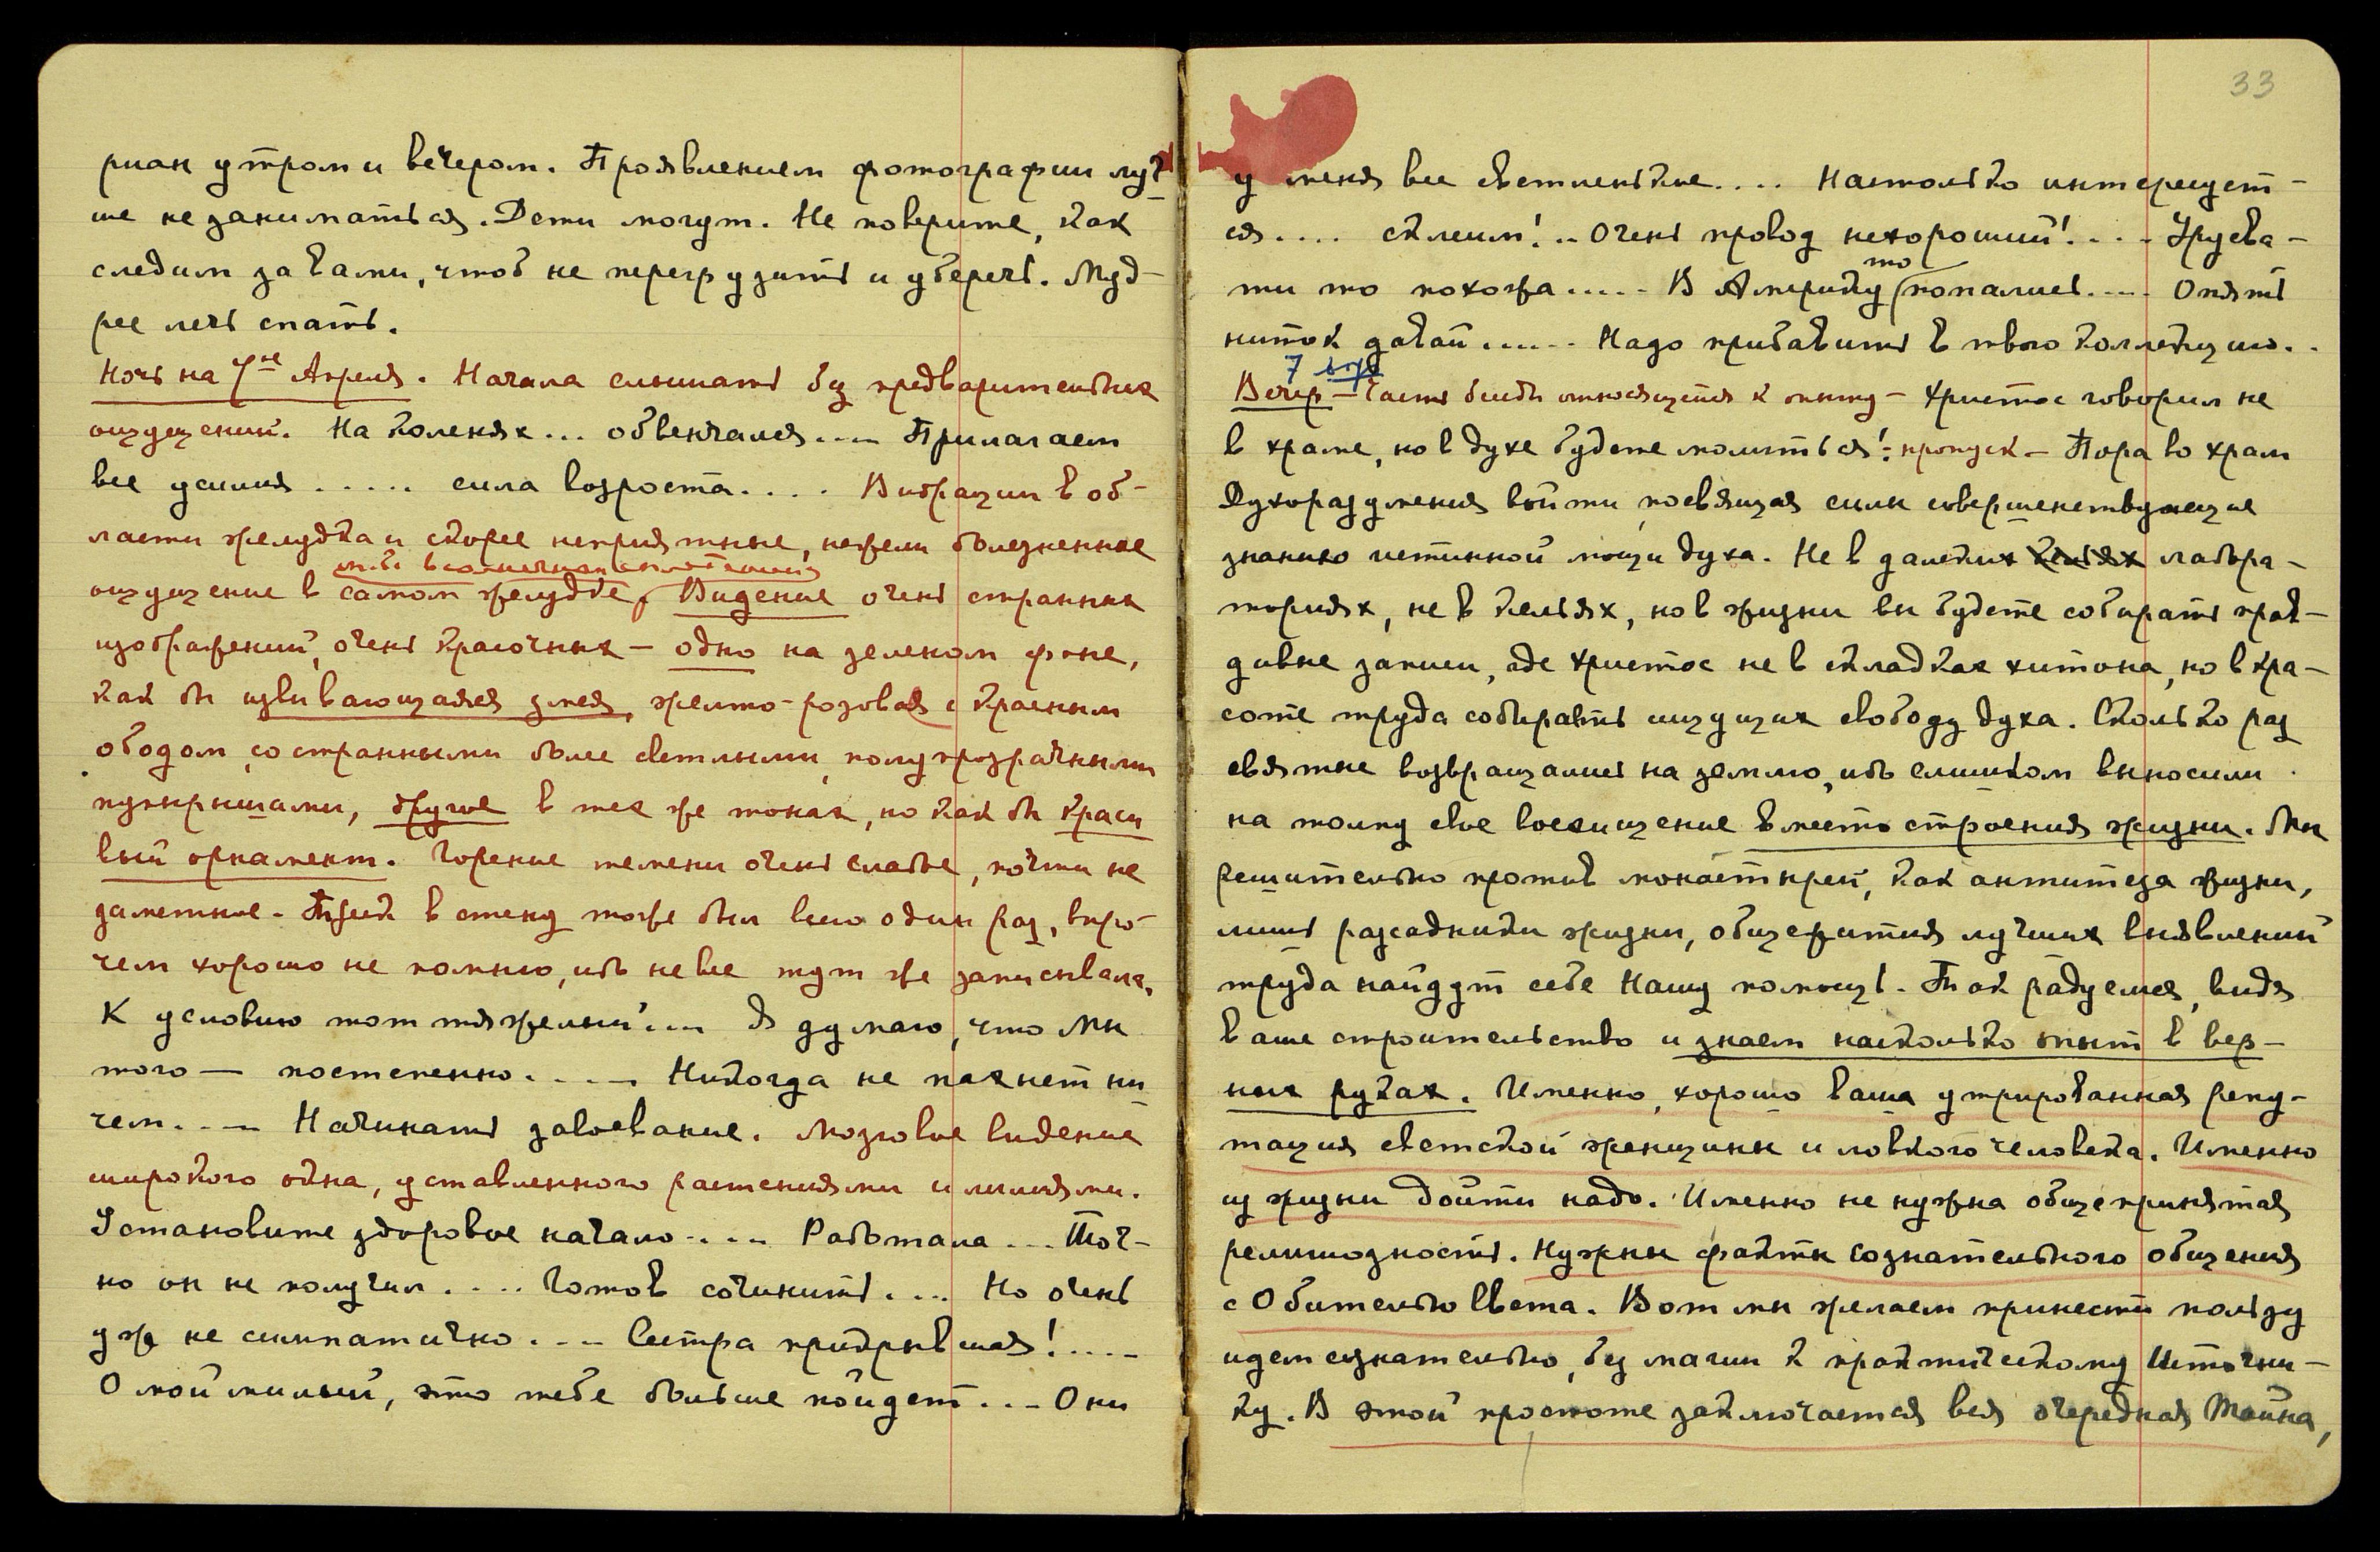 риан утром и вечером. Проявлением фотографии луч-
ше не заниматься. Дети могут. Не поверите, как
следим за вами, чтоб не перегрузить и уберечь. Муд-
рее лечь спать.
Ночь на 7-ое Апреля. Начала слышать без предварительных
ощущений. На коленях... обвенчался.... Прилагаем
все усилия ..... сила возроста.... Вибрации в об-
ласти желудка и скорее неприятные, нежели болезненные
ощущение в самом желудке, Видение очень странных
изображений, очень красочных — одно на зеленом фоне,
как бы извивающаяся змея, желто-розовая с красным
ободом, со странными более светлыми, полупрозрачными
пузырышами, другое в тех же тонах, но как бы краси
вый орнамент. Горение темени очень слабое, почти не
заметное. Треск в стену тоже был всего один раз, впро-
чем хорошо не помню, ибо не все тут же записывала.
К условию тот тяжелый.... Я думаю, что мы
того — постепенно..... Никогда не пахнет ни
чем.... Начинать завоевание. Мозговое видение
широкого окна, уставленного растениями и лилиями.
Установите здоровое начало.... Работала... Точ-
но он не получил.... Готов сочинить.... Но очень
уж не симпатично.... Сестра придрывшая!....
О мой милый, это тебе больше пойдет... Они
33
у меня все светленькие.... Настолько интересует-
ся.... склеим!.. Очень провод нехороший!.... Урусва-
ти то похожа..... В Америку то попались.... Опять
ниток давай...... Надо прибавить в твою коллекцию..
7
Вечер — Часть беседы относящуюся к опыту — Христос говорил не
в храме, но в духе будете молиться!: пропуск — Пора во храм
Духоразумения войти, посвящая силы совершенствующие
знанию истинной мощи духа. Не в далеких лабора-
ториях, не в кельях, но в жизни вы будете собирать прав-
дивые записи, где Христос не в складках хитона, но в кра-
соте труда собирает ищущих свободу духа. Сколько раз
святые возвращались на землю, ибо слишком выносили
на толпу свое восхищение вместо строения жизни. Мы
решительно против монастырей, как антитеза жизни,
лишь рассадники жизни, общежития лучших выявлений
труда найдут себе Нашу помощь. Так радуемся, видя
ваше строительство и знаем насколько опыт в вер-
ных руках. Именно, хорошо ваша утрированная репу-
тация светской женщины и ловкого человека. Именно
из жизни дойти надо. Именно не нужна общепринятая
религиозность. Нужны факты сознательного общения
с Обителью Света. Вот мы желаем принести пользу
идем сознательно, без магии к практическому Источни-
ку. В этой простоте заключается вся очередная Тайна,